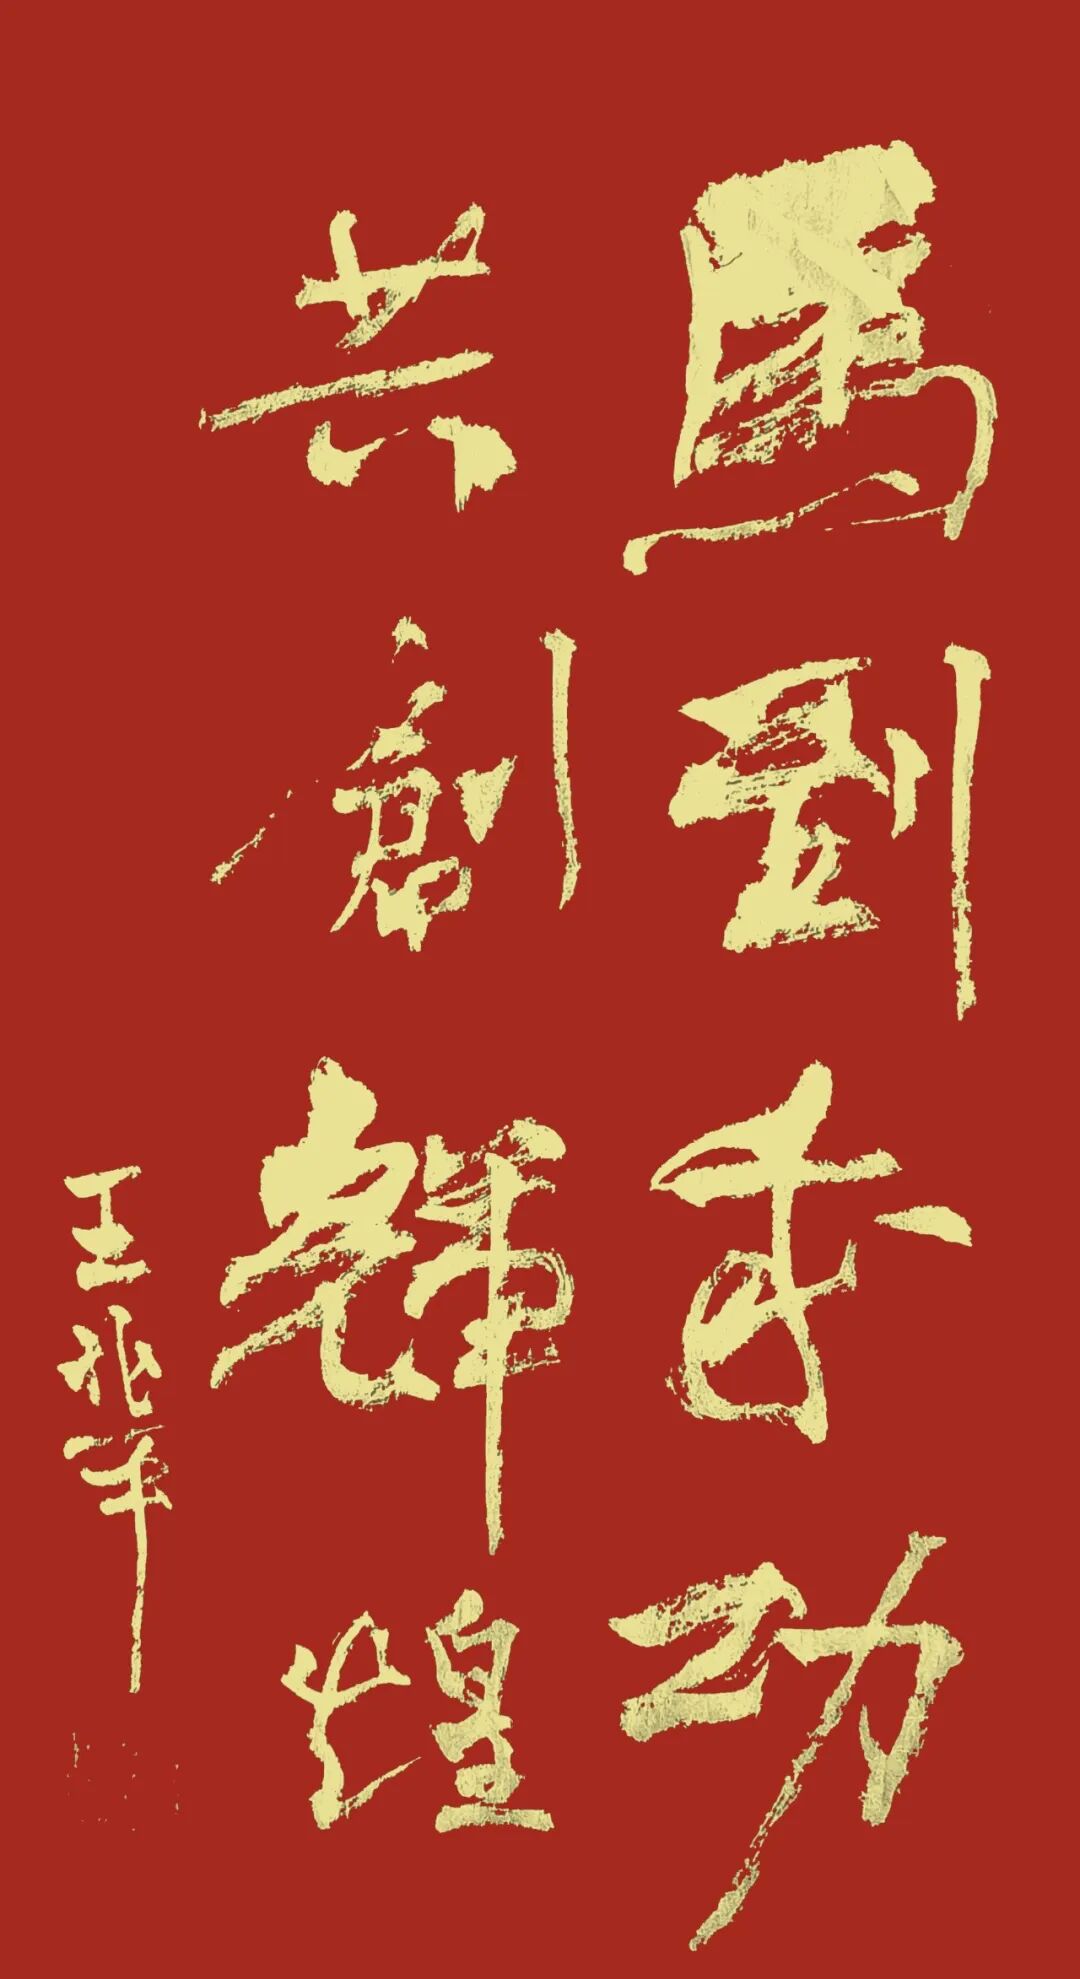 馬到成功
共創輝煌
王兆平